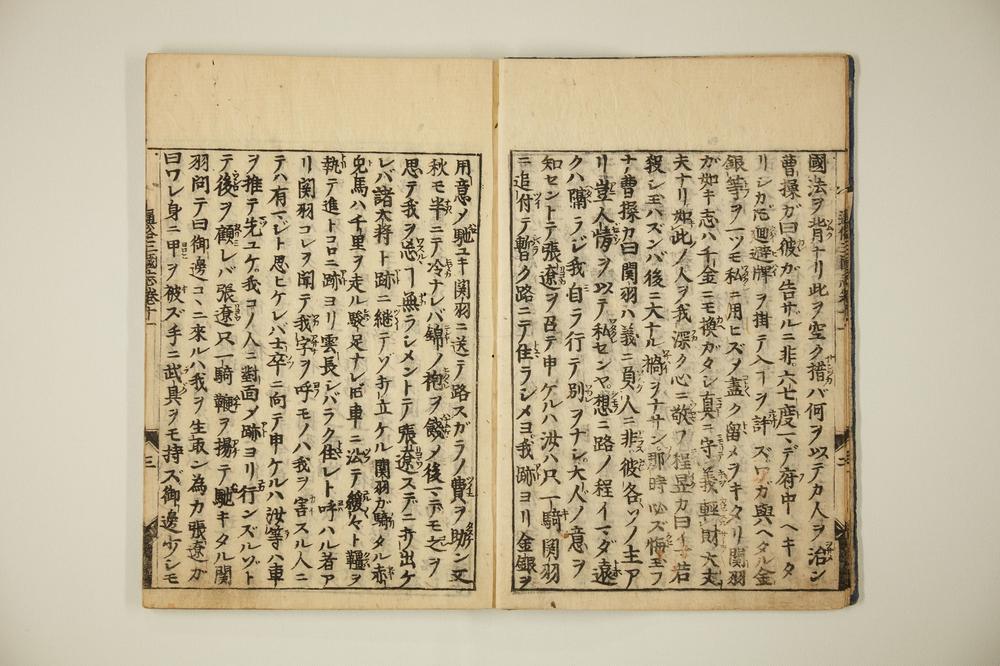 國法ヲ背ナリ此ヲ空ク措バ何ヲ以テカ人ヲ治ン
曹操ガ曰彼ガ告ザルニ非六七度マデ府中ヘキタ
リシカ𪜈廻避牌ヲ掛テ入ヿヲ許ズワガ與ヘタル金
銀等ヲ一ツモ私ニ用ヒズメ盡ク留メヲキタリ関羽
ガ如キ志ハ千金ニモ換ガタシ真ニ守義輕財大丈
夫ナリ如此ノ人ヲ我深ク心ニ敬フ程昱カ曰イマ若
殺シ玉ハズンバ後ニ大ナル禍ヲナサン那時必ズ悔玉フ
ナ曹操カ曰関羽ハ義ニ負人ニ非彼各ツノ主ア
リ豈人情ヲ以テ私センヤ想ニ路ノ程イマダ遠
クハ隔ラジ我自ラ行テ別ヲナシ大人ノ意ヲ
知セントテ張遼ヲ召テ申ケルハ汝ハ只一騎関羽
ニ追付テ暫ク路ニテ住ラシメヨ我跡ヨリ金銀ヲ
用意ノ馳ユキ関羽ニ送テ路スガラノ費ヲ助ン又
秋モ半ニテ冷ナレバ錦ノ袍ヲ餞メ後マデモ之ヲ
思テ我ヲ忘ヿ無ラシメントテ張遼スデニ打出ケ
レバ諸大将ト跡ニ継テゾ打立ケル関羽ガ騎タル赤
兎馬ハ千里ヲ走ル駿足ナレ𪜈車ニ公テ緩々ト韁ヲ
執テ進トコロニ跡ヨリ雲長シバラク住レト呼ハル者ア
リ関羽コレヲ聞テ我字ヲ呼モノハ我ヲ害スル人ニ
テハ有マジト思ヒケレバ士卒ニ向テ申ケルハ汝等ハ車
ヲ推テ先ユケ我コノ人ニ對面メ跡ヨリ行ンズルゾト
テ後ヲ顧レバ張遼只一騎鞭ヲ揚テ馳キタル関
羽問テ曰御邊コヽニ來ルハ我ヲ生取ン為カ張遼ガ
曰ワレ身ニ甲ヲ被ズ手ニ武具ヲモ持ズ御邊少シモ
通俗三國志巻十一
三